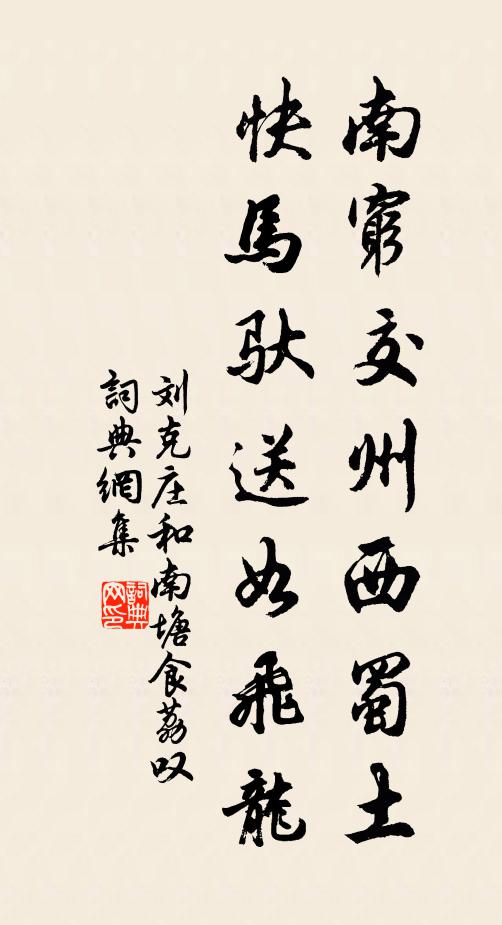 南窮交州西蜀土
快馬馱送如飛龍
刘克庄和南塘食荔叹
詞典網集
詞典网印